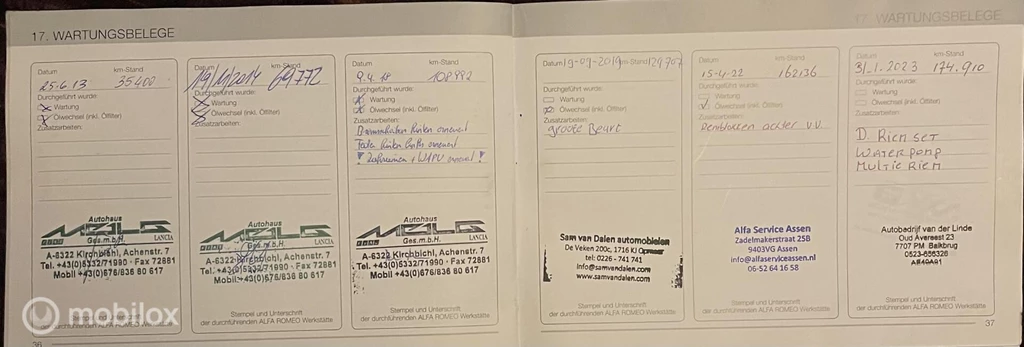 17. WARTUNGSBELEGE
Datum km-Stand
25.6.13 35400
Durchgeführt wurde:
Wartung
Ölwechsel (inkl. Ölfilter)
Zusatzarbeiten:
Autohaus
MEILS
LANCIA
Ges.m.b.H.
A-6322 Kirchbichl, Achenstr. 7
Tel. +43(0)5332/71990 · Fax 72881
Mobil +43(0)676/836 80 617
Stempel und Unterschrift
der durchführenden ALFA ROMEO Werkstätte
36
Datum km-Stand
19/11/2014 69772
Durchgeführt wurde:
Wartung
Ölwechsel (inkl. Ölfilter)
Zusatzarbeiten:
Autohaus
LANCIA
Ges.m.b.H.
A-6322 Kirchbichl, Achenstr. 7
Tel. +43(0)5332/71990 · Fax 72881
Mobil +43(0)676/836 80 617
Stempel und Unterschrift
der durchführenden ALFA ROMEO Werkstätte
Datum km-Stand
9.4.18 108992
Durchgeführt wurde:
Wartung
Ölwechsel (inkl. Ölfilter)
Zusatzarbeiten:
hinten erneuert
hinten erneuert
! Zahnriemen + WAPU erneuert !
Autohaus
LANCIA
Ges.m.b.H.
A-6322 Kirchbichl, Achenstr. 7
Tel. +43(0)5332/71990 · Fax 72881
Mobil +43(0)676/836 80 617
Stempel und Unterschrift
der durchführenden ALFA ROMEO Werkstätte
17. WARTUNGSBELEGE
Datum 19-09-2019 km-Stand 129707
Durchgeführt wurde:
Wartung
Ölwechsel (inkl. Ölfilter)
Zusatzarbeiten:
groote Beurt
Sam van Dalen automobielen
De Veken 200c, 1716 KJ Opmeer
tel: 0226 - 741 741
info@samvandalen.com
www.samvandalen.com
Stempel und Unterschrift
der durchführenden ALFA ROMEO Werkstätte
Datum km-Stand
15-4-22 162136
Durchgeführt wurde:
Wartung
Ölwechsel (inkl. Ölfilter)
Zusatzarbeiten:
Remblokken achter V.V.
Alfa Service Assen
Zadelmakerstraat 25B
9403VG Assen
info@alfaserviceassen.nl
06-52 64 16 58
Stempel und Unterschrift
der durchführenden ALFA ROMEO Werkstätte
Datum km-Stand
31.1.2023 174.910
Durchgeführt wurde:
Wartung
Ölwechsel (inkl. Ölfilter)
Zusatzarbeiten:
D. Riem set
Waterpomp
Multie Riem
Autobedrijf van der Linde
Oud Avereest 23
7707 PM Balkbrug
0523-656328
Stempel und Unterschrift
der durchführenden ALFA ROMEO Werkstätte
37
mobilox